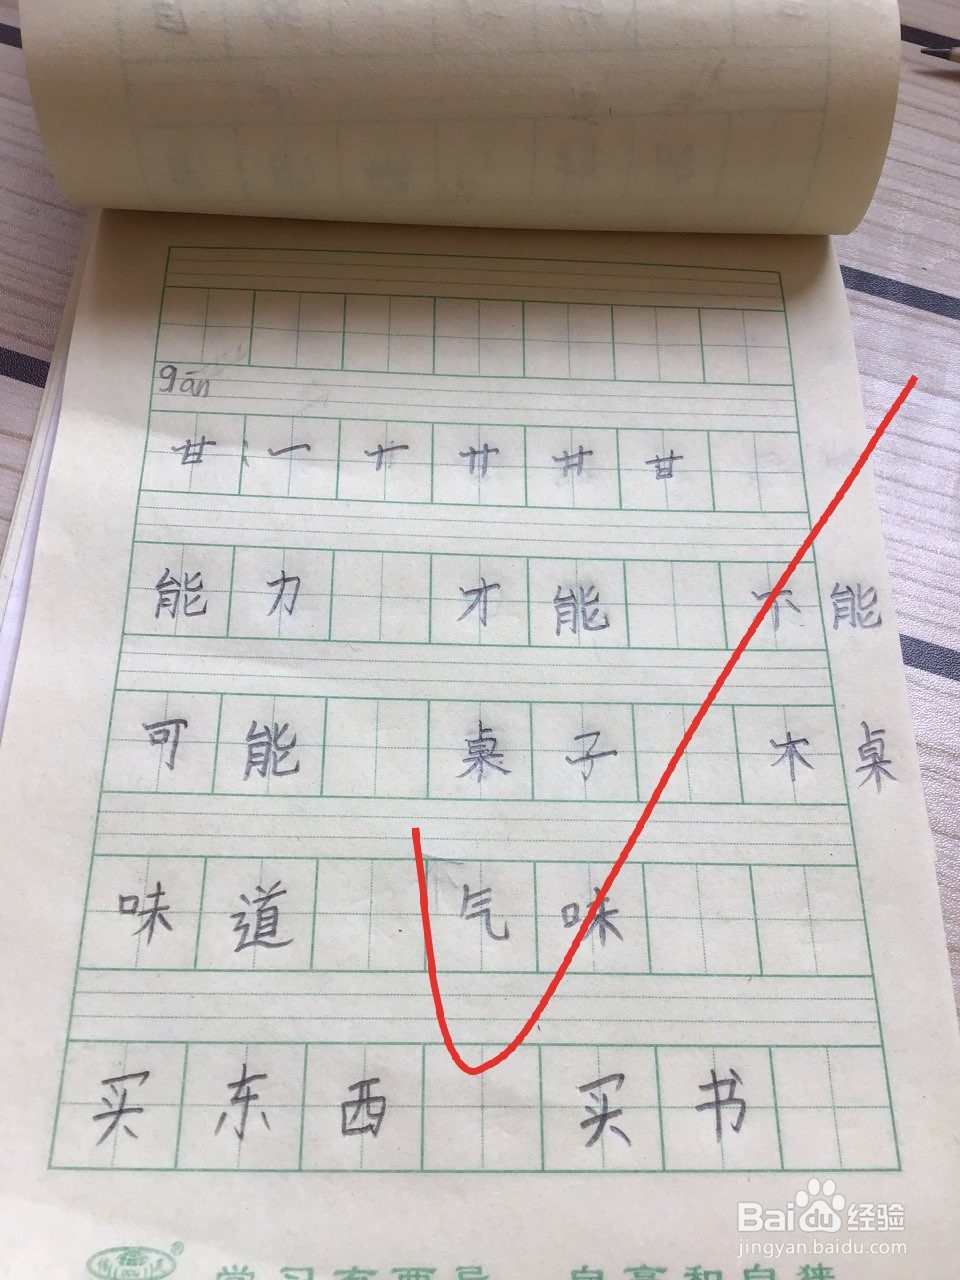 gān
甘 一 十 廿 廿 甘
能力 才能 不能
可能 桌子 木桌
味道 气味
买东西 买书
Baidu经验
jingyan.baidu.com